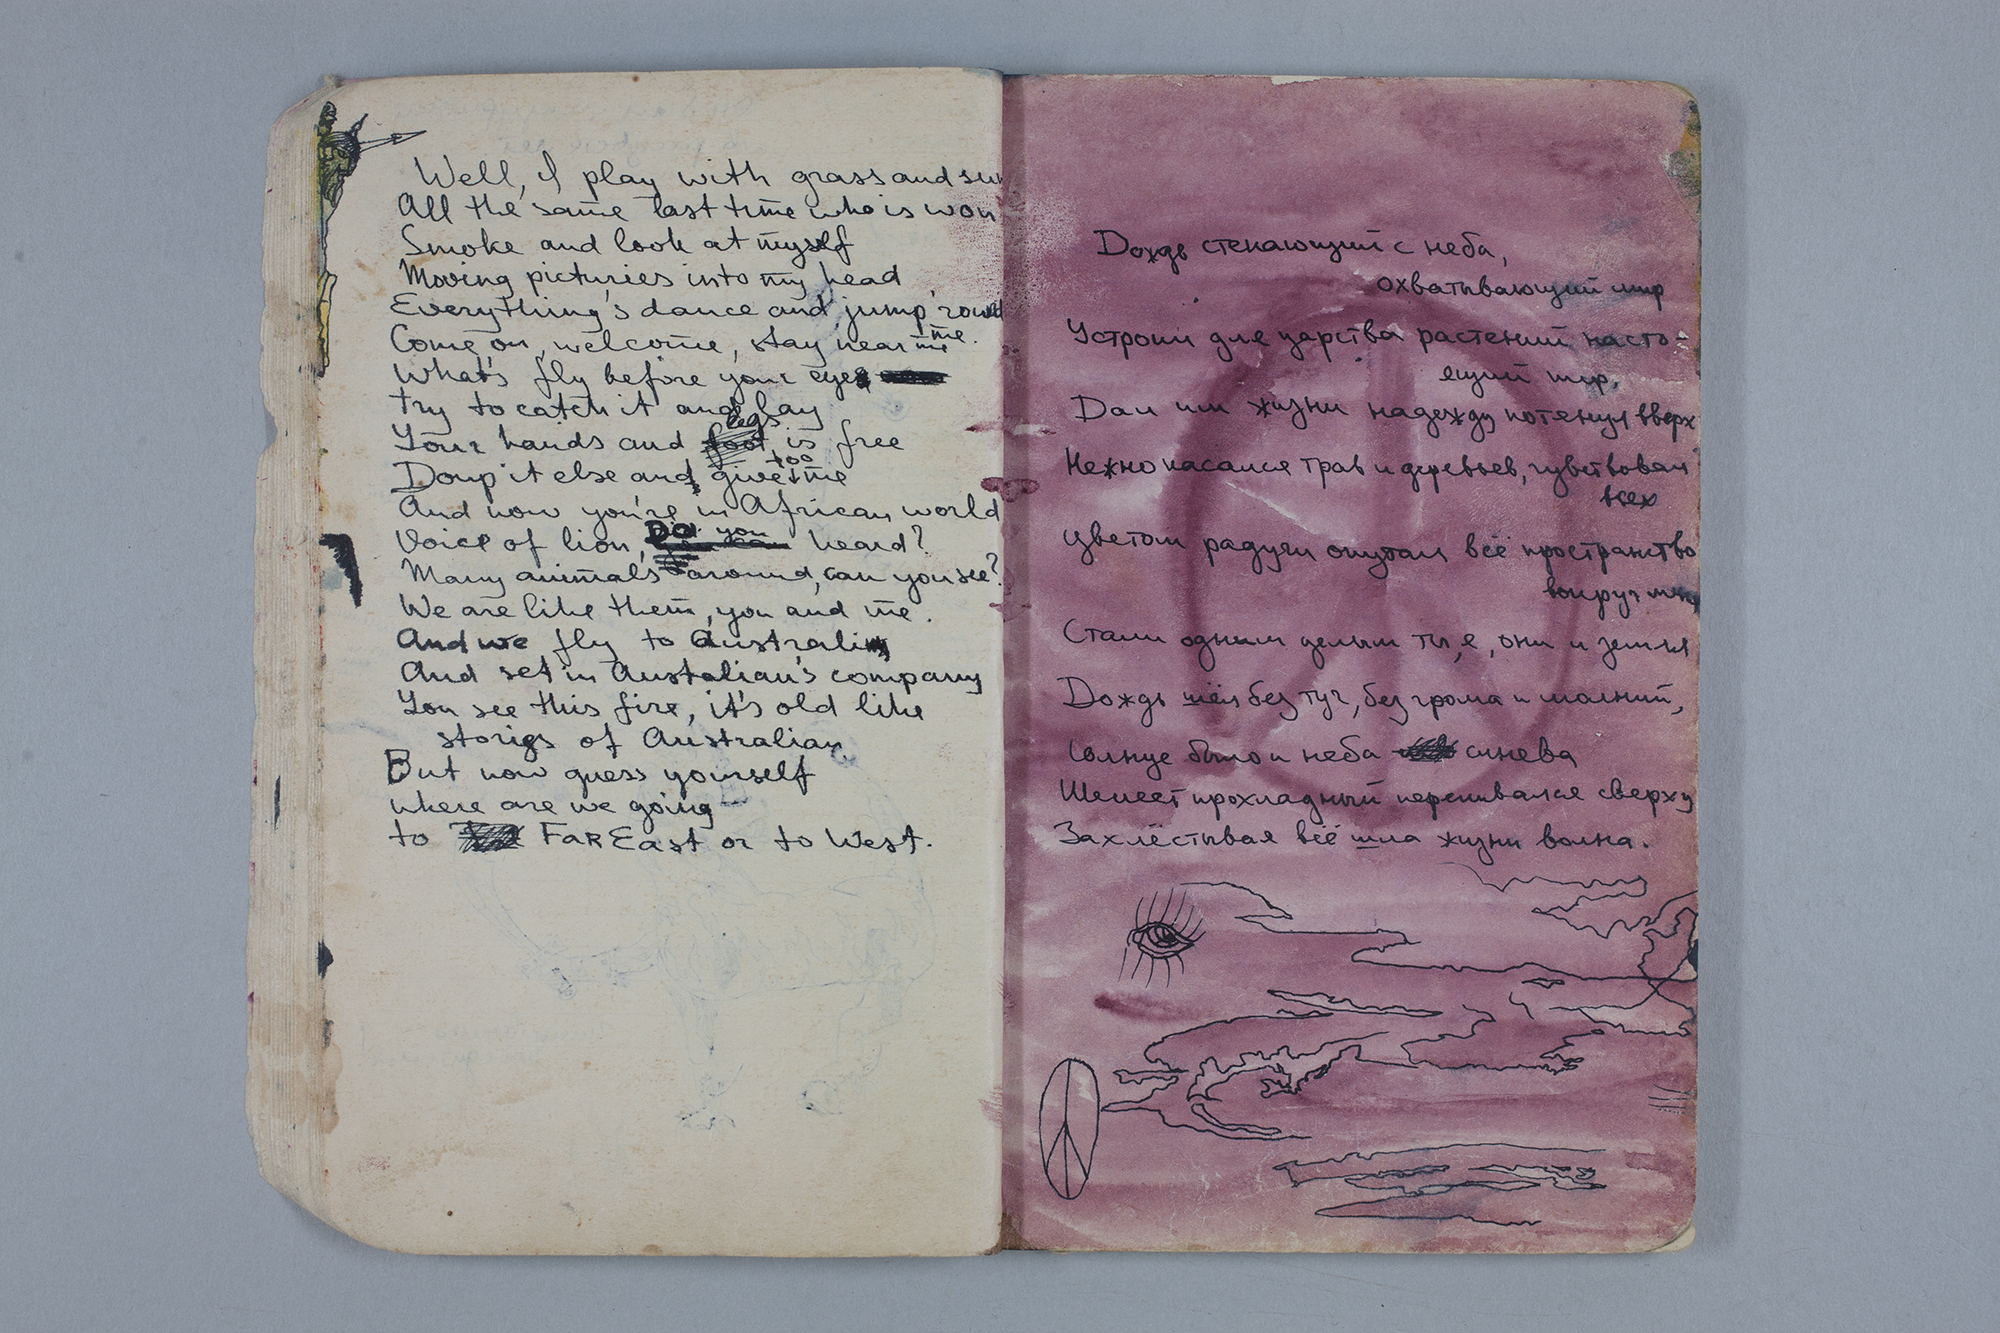 Well, I play with grass and sun
All the same last time who is won
Smoke and look at myself
Moving picturies into my head
Everything's dance and jump 'round
me.
Come on, welcome, stay near me
What's fly before your eyes
try to catch it and lay
legs
Your hands and foot is free
too
Doup it else and give me
And now you're in African world
Do you
Voice of lion, heard?
Many animals around, can you see?
We are like them, you and me.
And we fly to Australia
And set in Australian's company
You see this fire, it's old like
stories of Australian.
But now guess yourself
where are we going—
to Far East or to West.
Дождь стекающий с неба,
охватывающий мир
Устроил для царства растений насто-
ящий пир,
Дал им жизни надежду потянул вверх
Нежно касался трав и деревьев, чувствовал
всех
Цветом радуги опутал всё пространство
вокруг
Стали одним целым ты, я, они и земля
Дождь шёл без туч, без грома и молний,
Солнце было и неба синева
Шелест прохладный переливался сверху
Захлёстывая всё шла жизни волна.